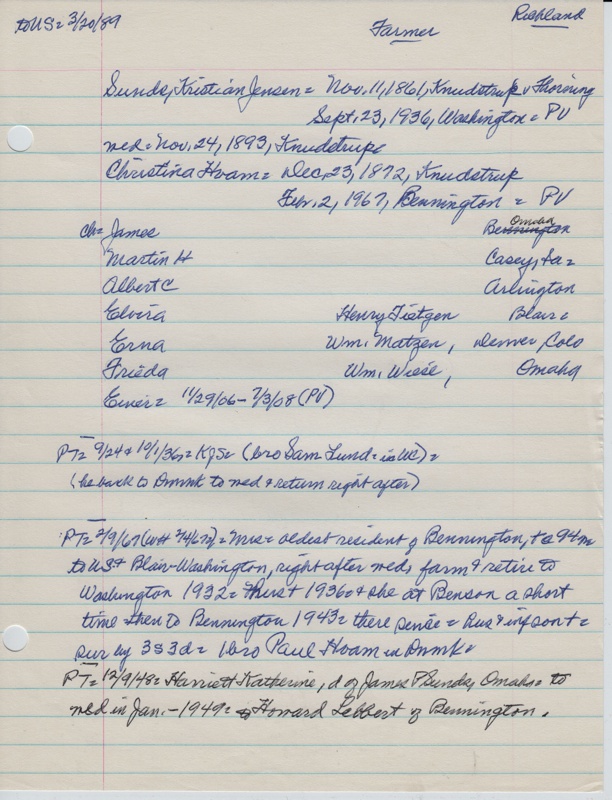 to US = 3/20/89
Farmer
Richland
Sunds, Kristian Jensen = Nov. 11, 1861, Knudstrup v Thorning
Sept. 23, 1936, Washington = PV
wed = Nov. 24, 1893, Knudstrup
Christina Hvam = Dec. 23, 1872, Knudstrup
Feb. 2, 1967, Bennington = PV
ch = James Bennington Omaha
Martin H Casey, Ia =
Albert C Arlington
Elvira Henry Tietgen Blair =
Erna Wm. Matzen, Denver, Colo
Frieda Wm. Wiese, Omaha
Einer = 11/29/06 - 7/3/08 (PV)
PT = 9/24 & 10/1/36 = KJS = (bro Sam Lund = in WC) =
(he back to Dnmk to wed & return right after)
PT = 2/9/67 = Mrs = oldest resident of Bennington, + a 94 =
to US & Blair-Washington, right after wed, farm & retire to
Washington 1932 = Hus + 1936 = & she at Benson a short
time then to Bennington 1943 = there sense = hus & inf son + =
sur by 3s 3d = 1 bro Paul Hvam in Dnmk =
PT = 12/9/48 = Harriett Katherine, d of James P Sunds, Omaha = to
wed in Jan. - 1949 = Howard Lebbert of Bennington.